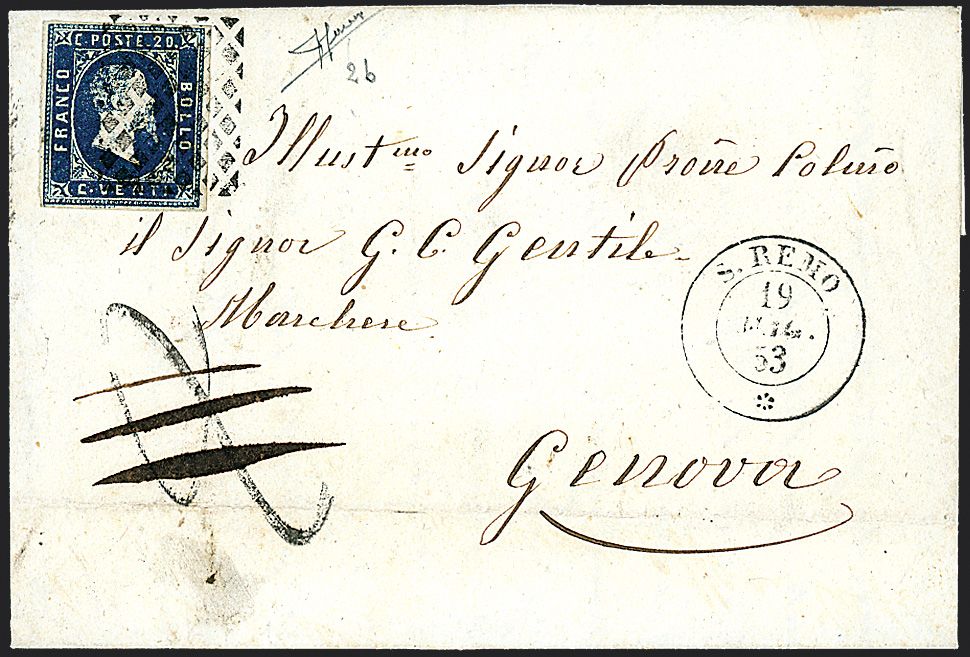 C. POSTE. 20.
FRANCO
BOLLO
C. VENTI
2 b
Illust.mo Signor Prõne Colmo
il Signor G. C. Gentile
Marchese
S. REMO
19
LUG.
53
Genova